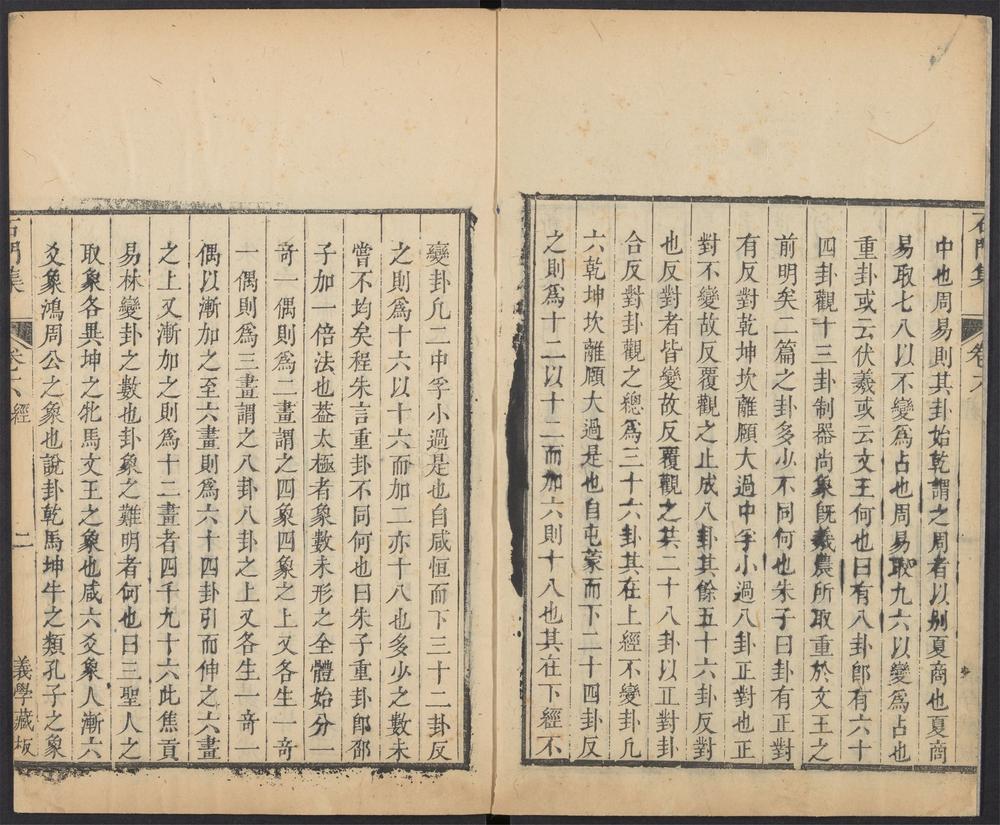 石門集 卷六
中也周易則其卦始乾謂之周者以別夏商也夏商
易取七八以不變爲占也周易取九六以變爲占也
重卦或云伏羲或云文王何也曰有八卦卽有六十
四卦觀十三卦制器尚象旣羲農所取重於文王之
前明矣二篇之卦多少不同何也朱子曰卦有正對
有反對乾坤坎離頤大過中孚小過八卦正對也正
對不變故反覆觀之止成八卦其餘五十六卦反對
也反對者皆變故反覆觀之共二十八卦以正對卦
合反對卦觀之總爲三十六卦其在上經不變卦凡
六乾坤坎離頤大過是也自屯蒙而下二十四卦反
之則爲十二以十二而加六則十八也其在下經不
變卦凡二中孚小過是也自咸恒而下三十二卦反
之則爲十六以十六而加二亦十八也多少之數未
嘗不均矣程朱言重卦不同何也曰朱子重卦卽邵
子加一倍法也蓋太極者象數未形之全體始分一
竒一偶則爲二畫謂之四象四象之上又各生一竒
一偶則爲三畫謂之八卦八卦之上又各生一竒一
偶以漸加之至六畫則爲六十四卦引而伸之六畫
之上又漸加之則爲十二畫者四千九十六此焦貢
易林變卦之數也卦象之難明者何也曰三聖人之
取象各異坤之牝馬文王之象也咸六爻象人漸六
爻象鴻周公之象也說卦乾馬坤牛之類孔子之象
石門集 卷六經 二 義學藏坂